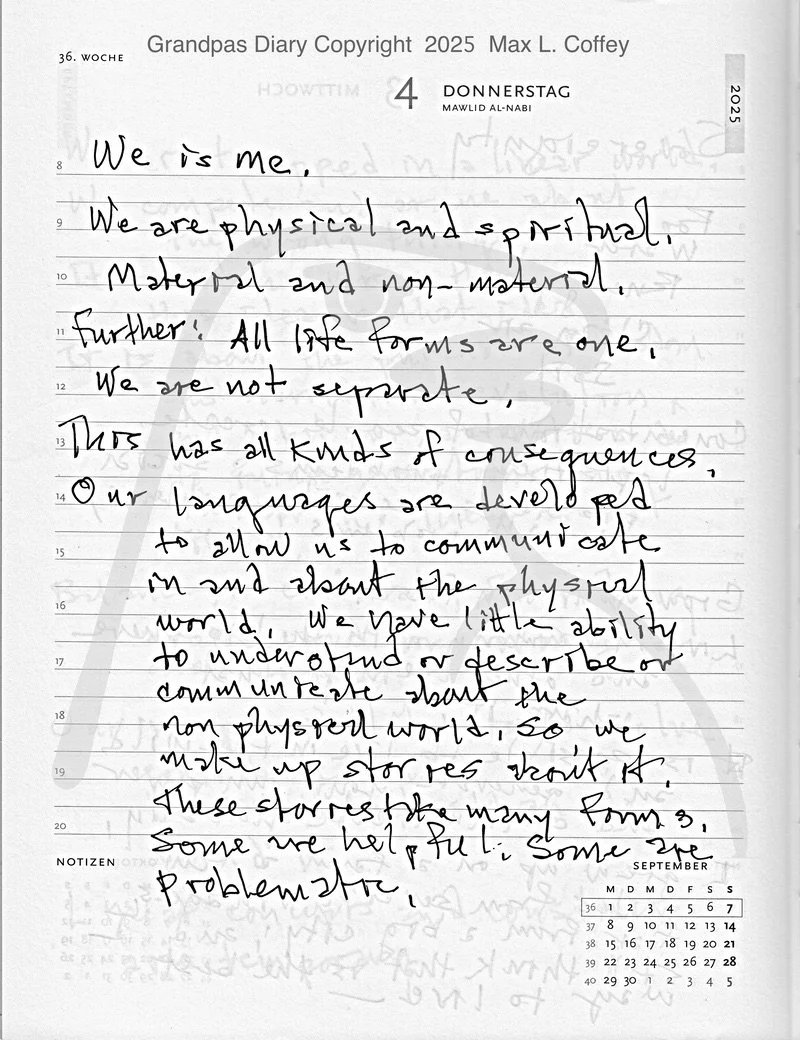 Grandpas Diary Copyright 2025 Max L. Coffey
36. WOCHE
4 DONNERSTAG
MAWLID AL-NABI
2025
8 We is me.
9 We are physical and spiritual.
10 Material and non-material.
11 Further: All life forms are one.
12 We are not separate.
13 This has all kinds of consequences.
14 Our languages are developed
to allow us to communicate
15 in and about the physical
16 world. We have little ability
17 to understand or describe or
communicate about the
18 non physical world, so we
19 make up stories about it.
These stories take many forms.
20 Some are helpful. Some are
problematic.
NOTIZEN
SEPTEMBER
M D M D F S S
36 1 2 3 4 5 6 7
37 8 9 10 11 12 13 14
38 15 16 17 18 19 20 21
39 22 23 24 25 26 27 28
40 29 30 1 2 3 4 5